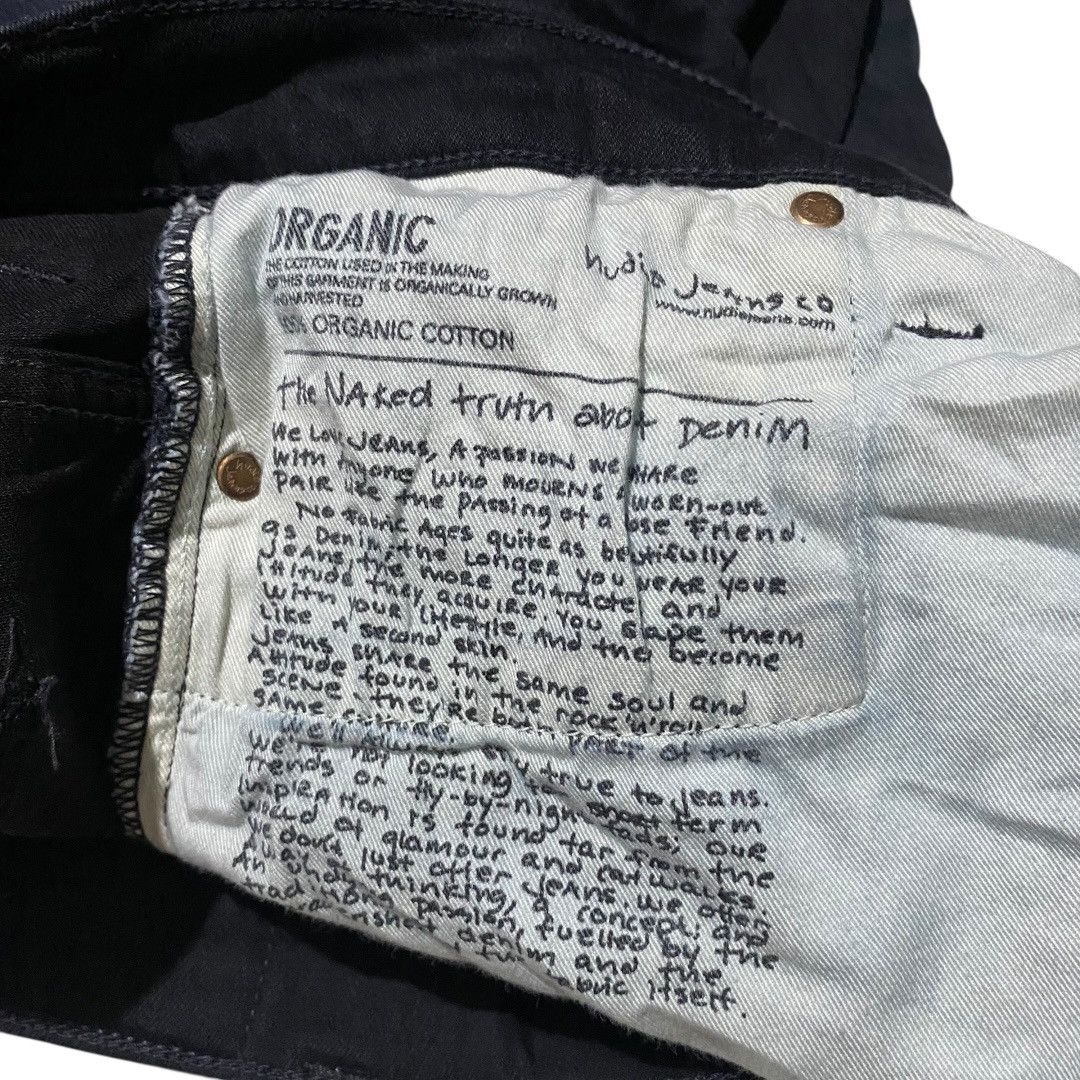 ORGANIC
THE COTTON USED IN THE MAKING
OF THIS GARMENT IS ORGANICALLY GROWN
AND HARVESTED
ORGANIC COTTON
nudie jeans co
www.nudiejeans.com
the NAked truth about Denim
We Love Jeans, A passion we share
with anyone who mourns a worn-out
pair like the passing of a close friend.
No fabric Ages quite as beautifully
as Denim. the Longer you wear your
jeans, the more character and
Attitude they acquire. You shape them
with your lifestyle, and they become
Like A second skin.
Jeans share the same soul and
Attitude found in the rock'n'roll
scene. they're both PART of the
same culture.
We'll always stay true to jeans.
We're not looking for short term
trends or fly-by-night fads; our
inspiration is found far from the
world of glamour and catwalks.
We don't just offer jeans. We offer
A way of thinking, a concept, and
An undying passion, fuelled by the
traditions of denim and the
fabric itself.